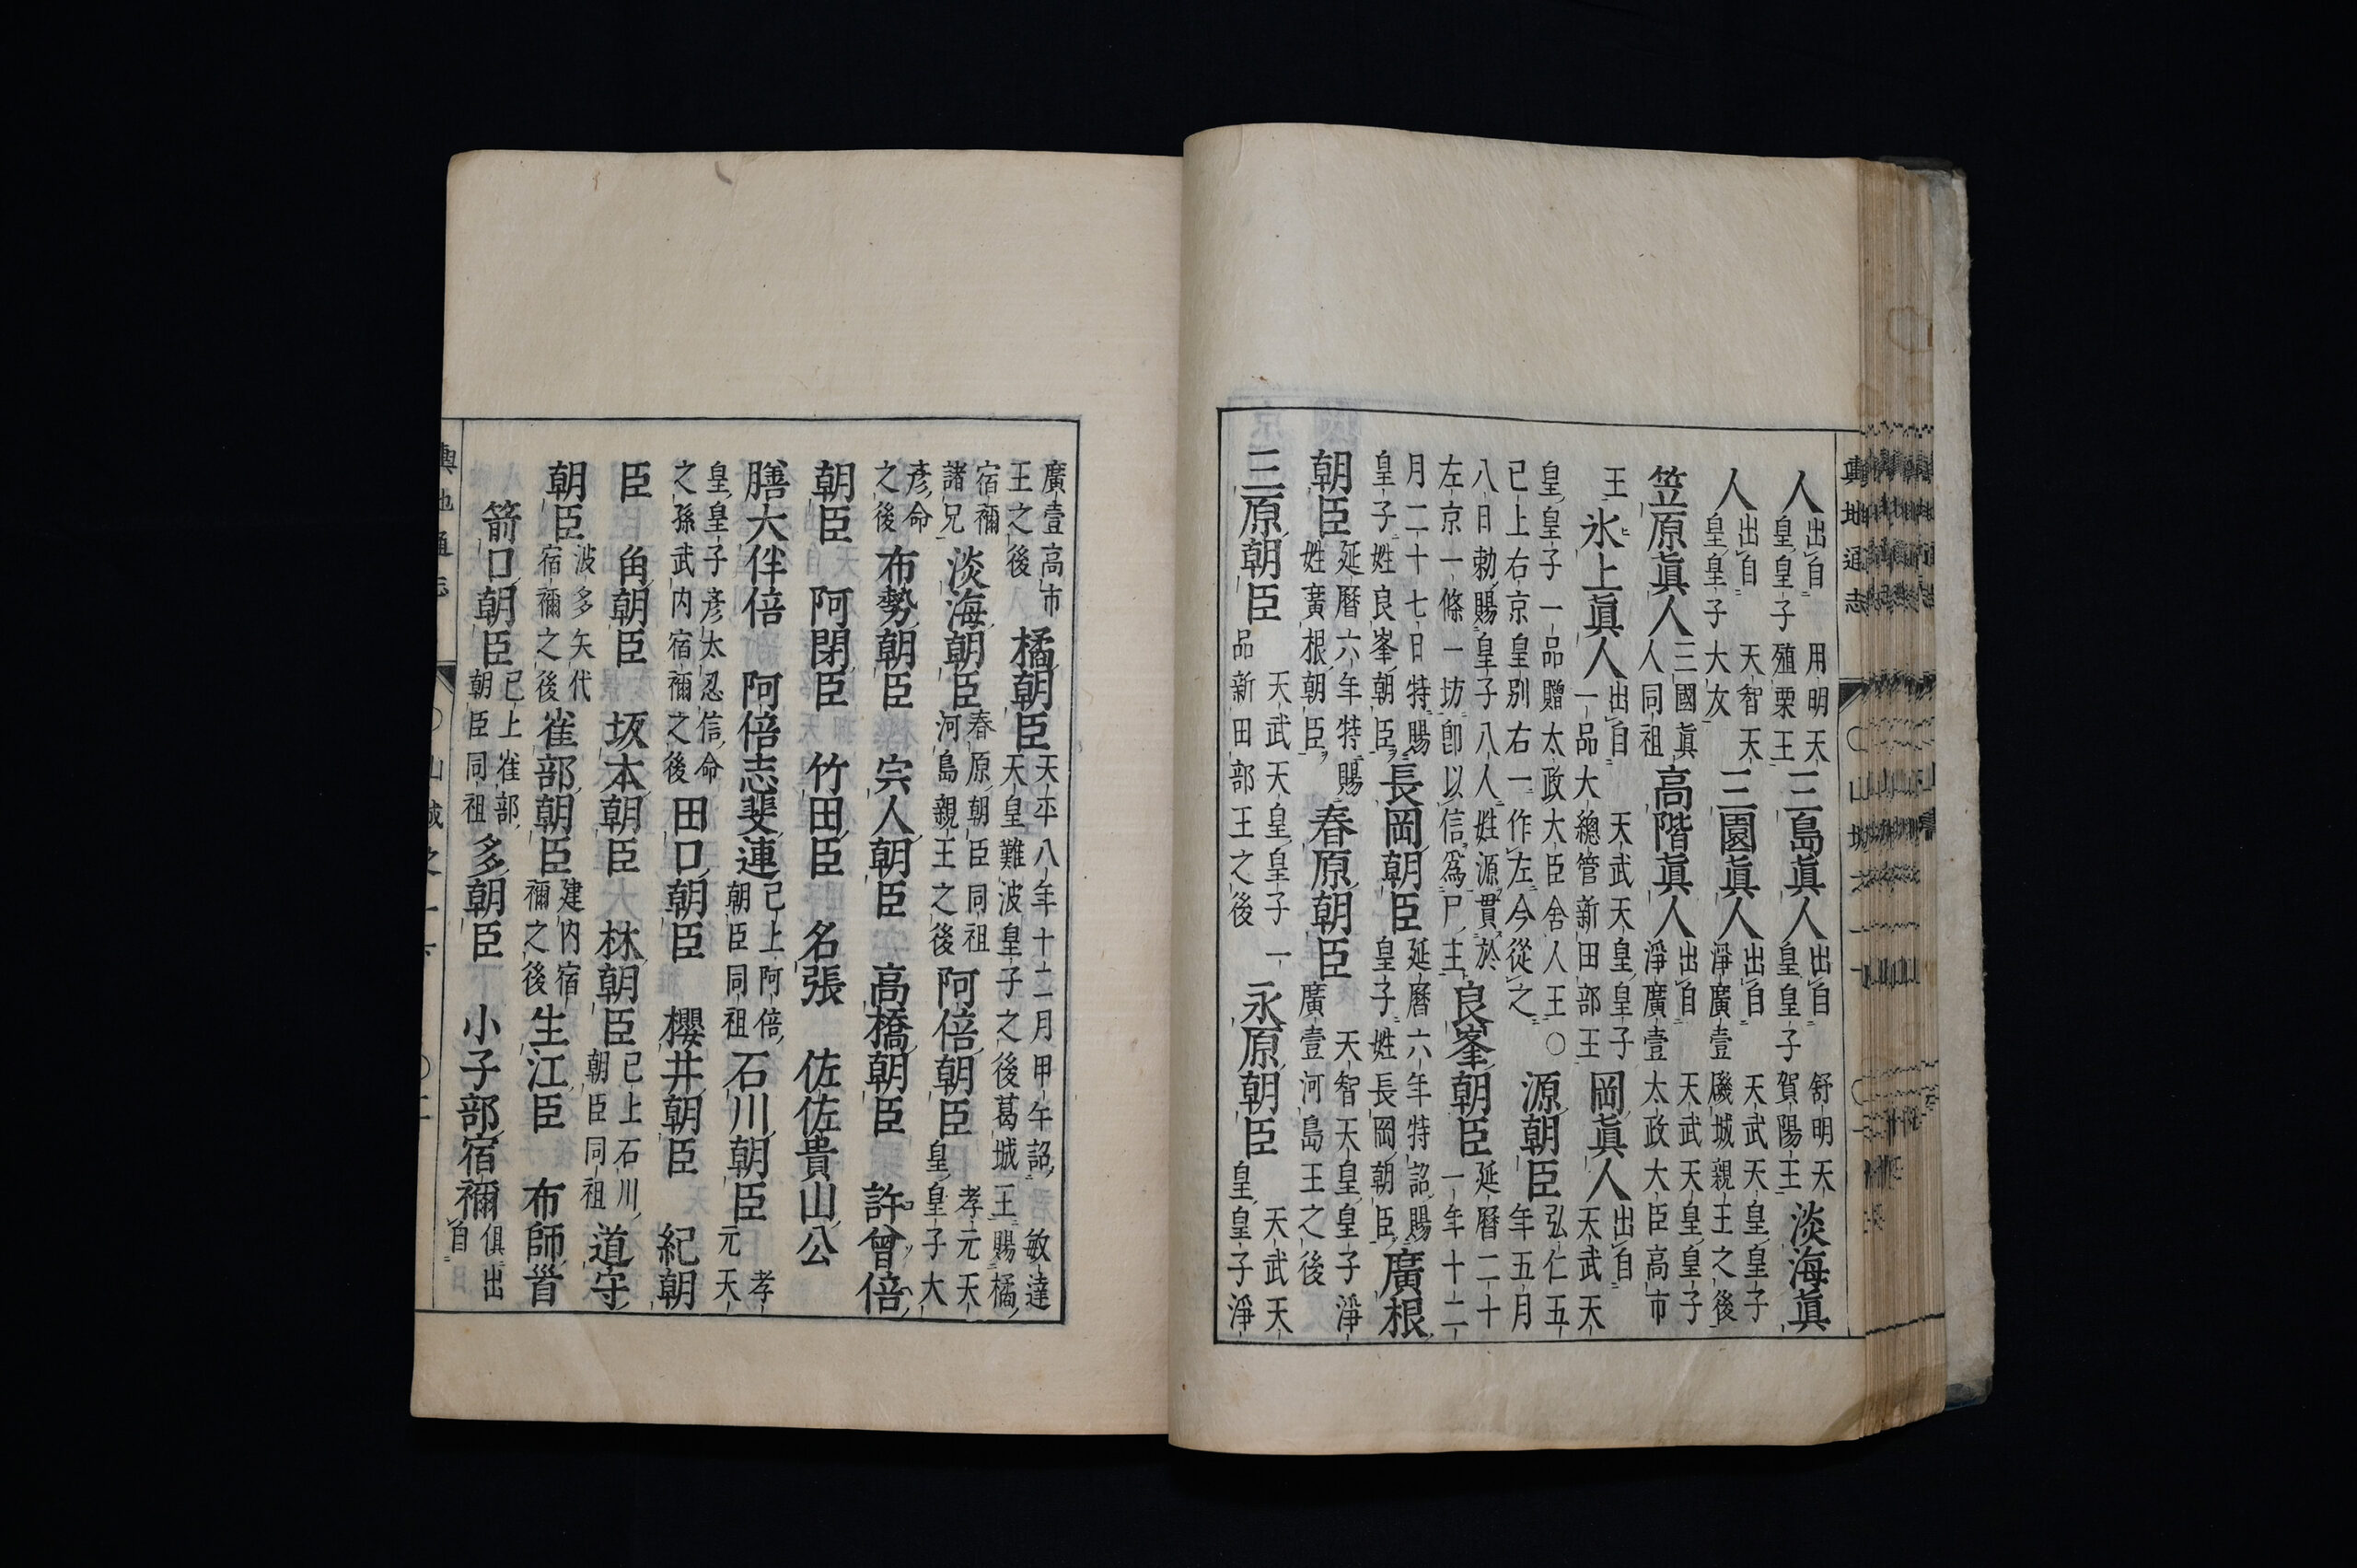 輿地通志 ○山城之一
人出自 用明天皇皇子殖栗王三島眞人出自 舒明天皇皇子賀陽王淡海眞
人出自 天智天皇皇子大友三園眞人出自 天武天皇皇子淨廣壹磯城親王之後
笠原眞人三國眞人同祖高階眞人出自 天武天皇皇子淨廣壹太政大臣高市
王氷上眞人出自 天武天皇皇子一品大總管新田部王岡眞人出自天武天
皇皇子一品贈太政大臣舍人王○已上右京皇別右一作左今從之源朝臣弘仁五年五月
八日勅賜皇子八人姓源貫於左京一條一坊卽以信爲戸主良峯朝臣延曆二十一年十二
月二十七日特賜皇子姓良峯朝臣長岡朝臣延曆六年特詔賜皇子姓長岡朝臣廣根
朝臣延曆六年特賜姓廣根朝臣春原朝臣天智天皇皇子淨廣壹河島王之後
三原朝臣天武天皇皇子一品新田部王之後永原朝臣天武天皇皇子淨
廣壹高市王之後橘朝臣天平八年十二月甲午詔 敏達天皇難波皇子之後葛城王賜橘
宿禰諸兄淡海朝臣春原朝臣同祖河島親王之後阿倍朝臣孝元天皇皇子大
彦命之後布勢朝臣 宍人朝臣 高橋朝臣 許曾倍
朝臣 阿閉臣 竹田臣 名張 佐佐貴山公
膳大伴倍 阿倍志斐連已上阿倍朝臣同祖石川朝臣孝元天
皇皇子彦太忍信命之孫武内宿禰之後田口朝臣 櫻井朝臣 紀朝
臣 角朝臣 坂本朝臣 林朝臣已上石川朝臣同祖道守
朝臣波多矢代宿禰之後雀部朝臣建内宿禰之後生江臣 布師首
箭口朝臣已上雀部朝臣同祖多朝臣 小子部宿禰俱出自